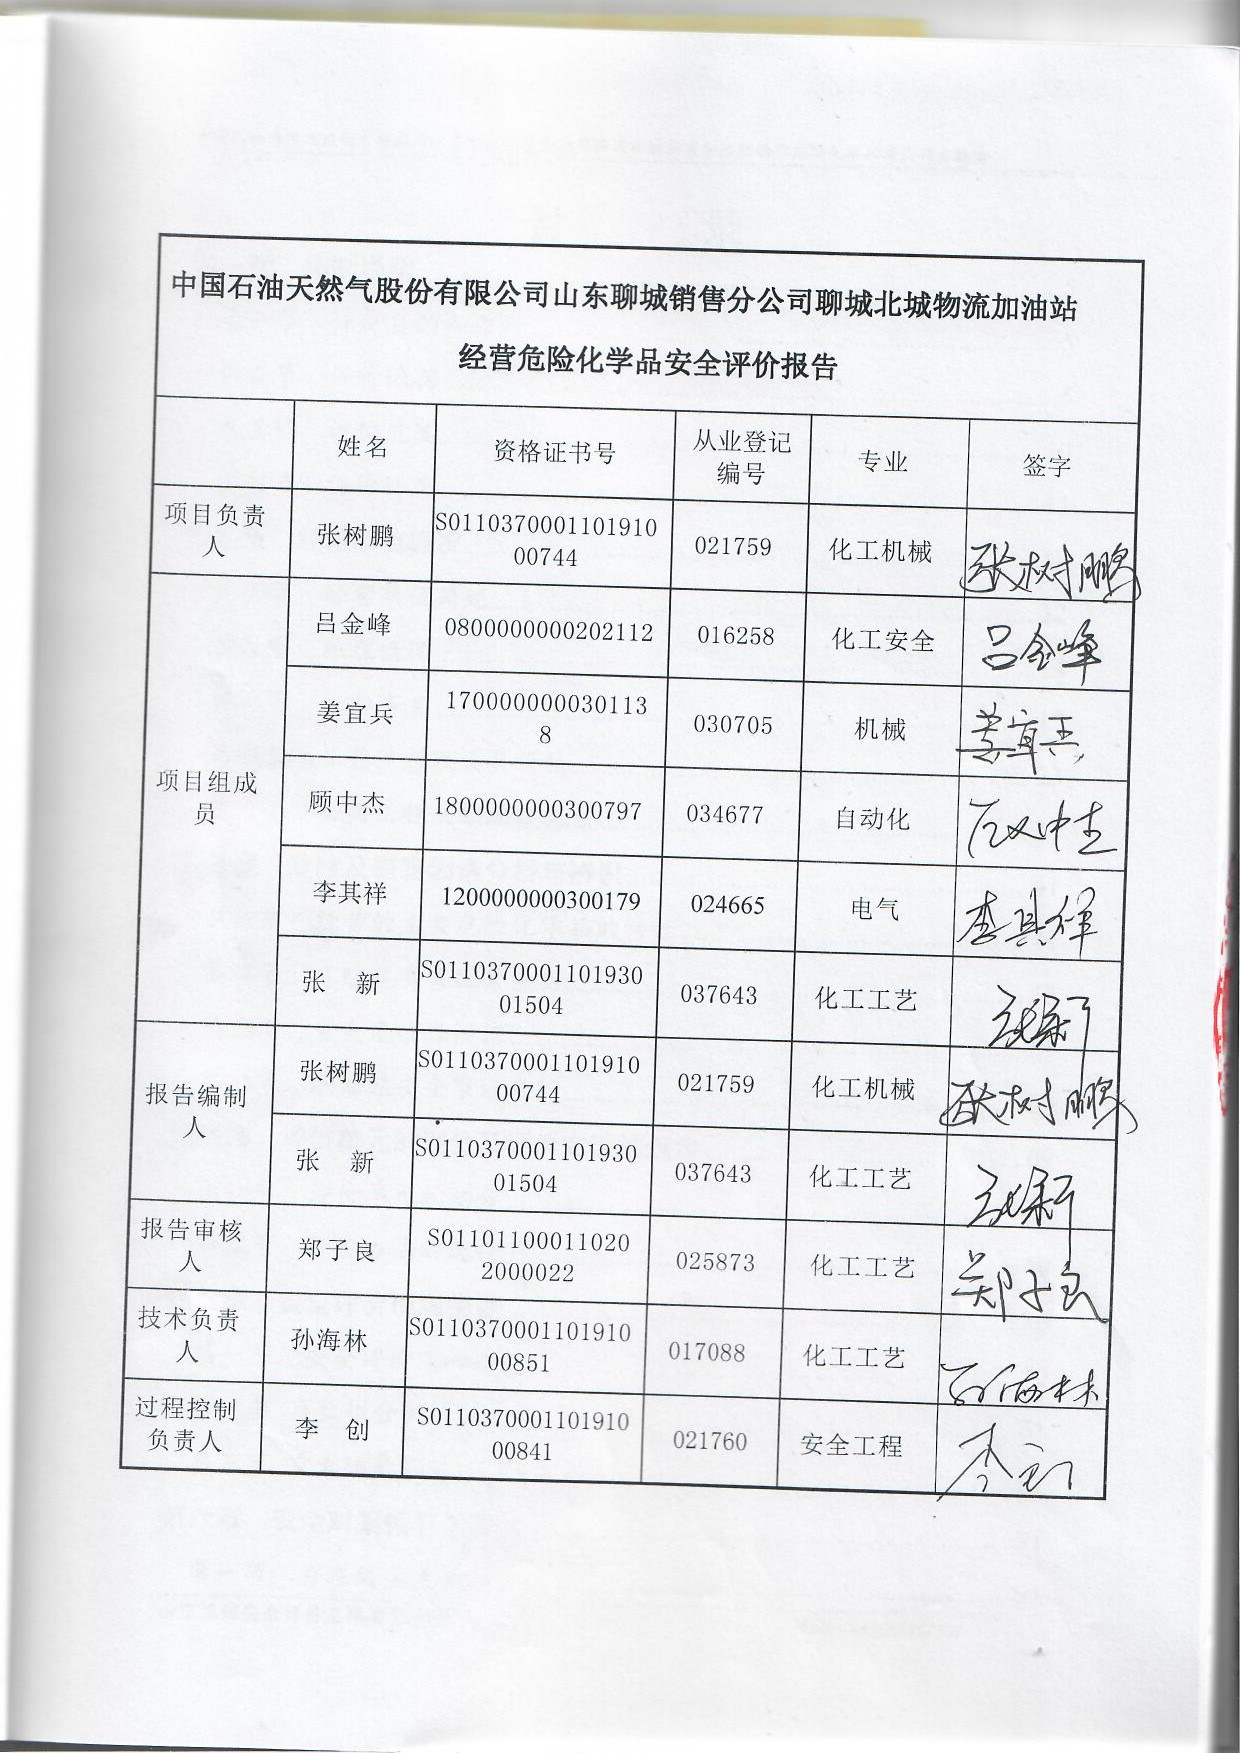 中国石油天然气股份有限公司山东聊城销售分公司聊城北城物流加油站
经营危险化学品安全评价报告
姓名 资格证书号 从业登记 专业 签字
编号
项目负责 张树鹏 S0110370001101910 021759 化工机械 张树鹏
人 00744
项目组成
员
吕金峰 0800000000202112 016258 化工安全 吕金峰
姜宜兵 170000000030113 030705 机械 姜宜兵
8
顾中杰 1800000000300797 034677 自动化 顾中杰
李其祥 1200000000300179 024665 电气 李其祥
张 新 S0110370001101930 037643 化工工艺 张新
01504
报告编制
人
张树鹏 S0110370001101910 021759 化工机械 张树鹏
00744
张 新 S0110370001101930 037643 化工工艺 张新
01504
报告审核 郑子良 S01101100011020 025873 化工工艺 郑子良
人 2000022
技术负责 孙海林 S0110370001101910 017088 化工工艺 孙海林
人 00851
过程控制 李 创 S0110370001101910 021760 安全工程 李创
负责人 00841